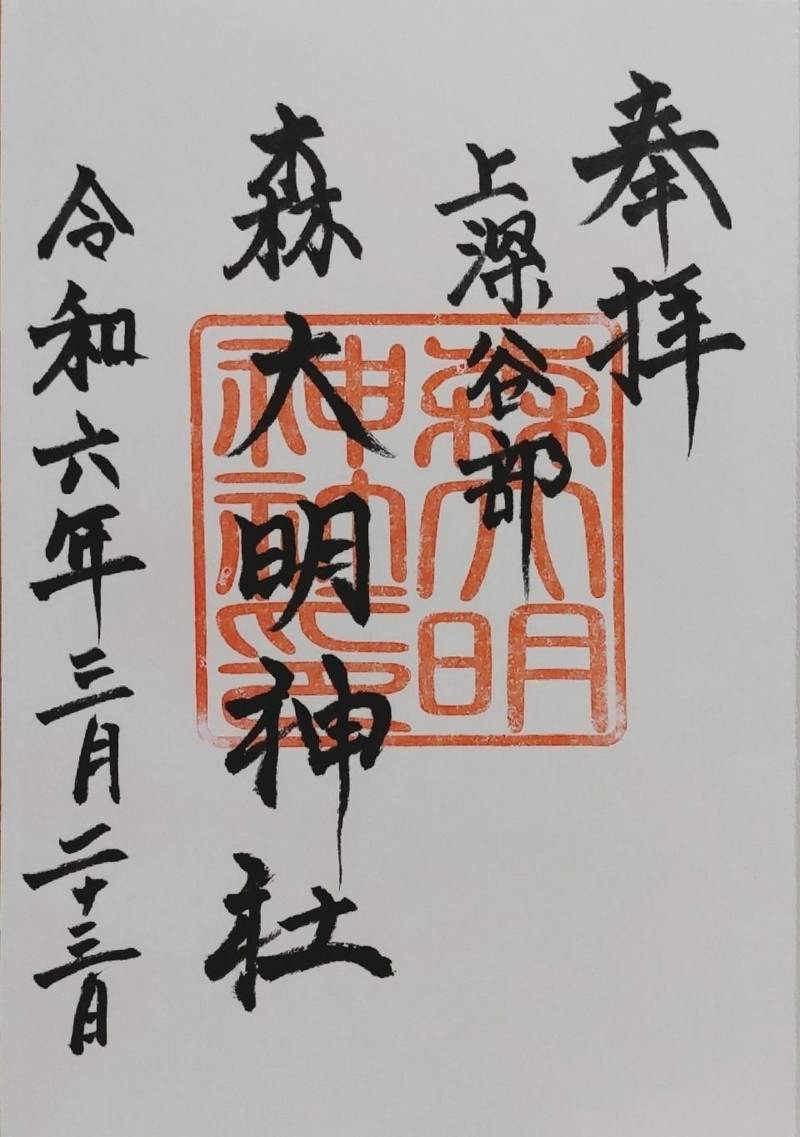 奉拝
上深谷部
森大明神社
令和六年三月二十三日
森大明
神社之印